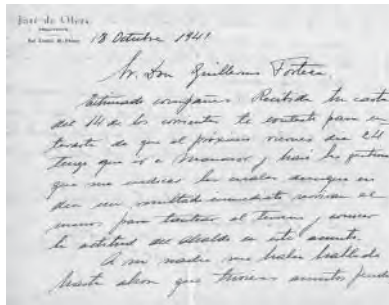 José de Oleza
18 Octubre 1941
Sr. Don Guillermo Forteza
Estimado compañero: Recibida tu carta
del 14 de los corrientes te contesto para en
terarte de que el próximo viernes dia 24
tengo que ir a Manacor y haré la gestión
que me indicas la cual aunque no
den un resultado inmediato servirán al
menos para tantear el terreno y conocer
la actitud del Alcalde en este asunto.
A mi madre me había hablado
hasta ahora que tuvieras asuntos